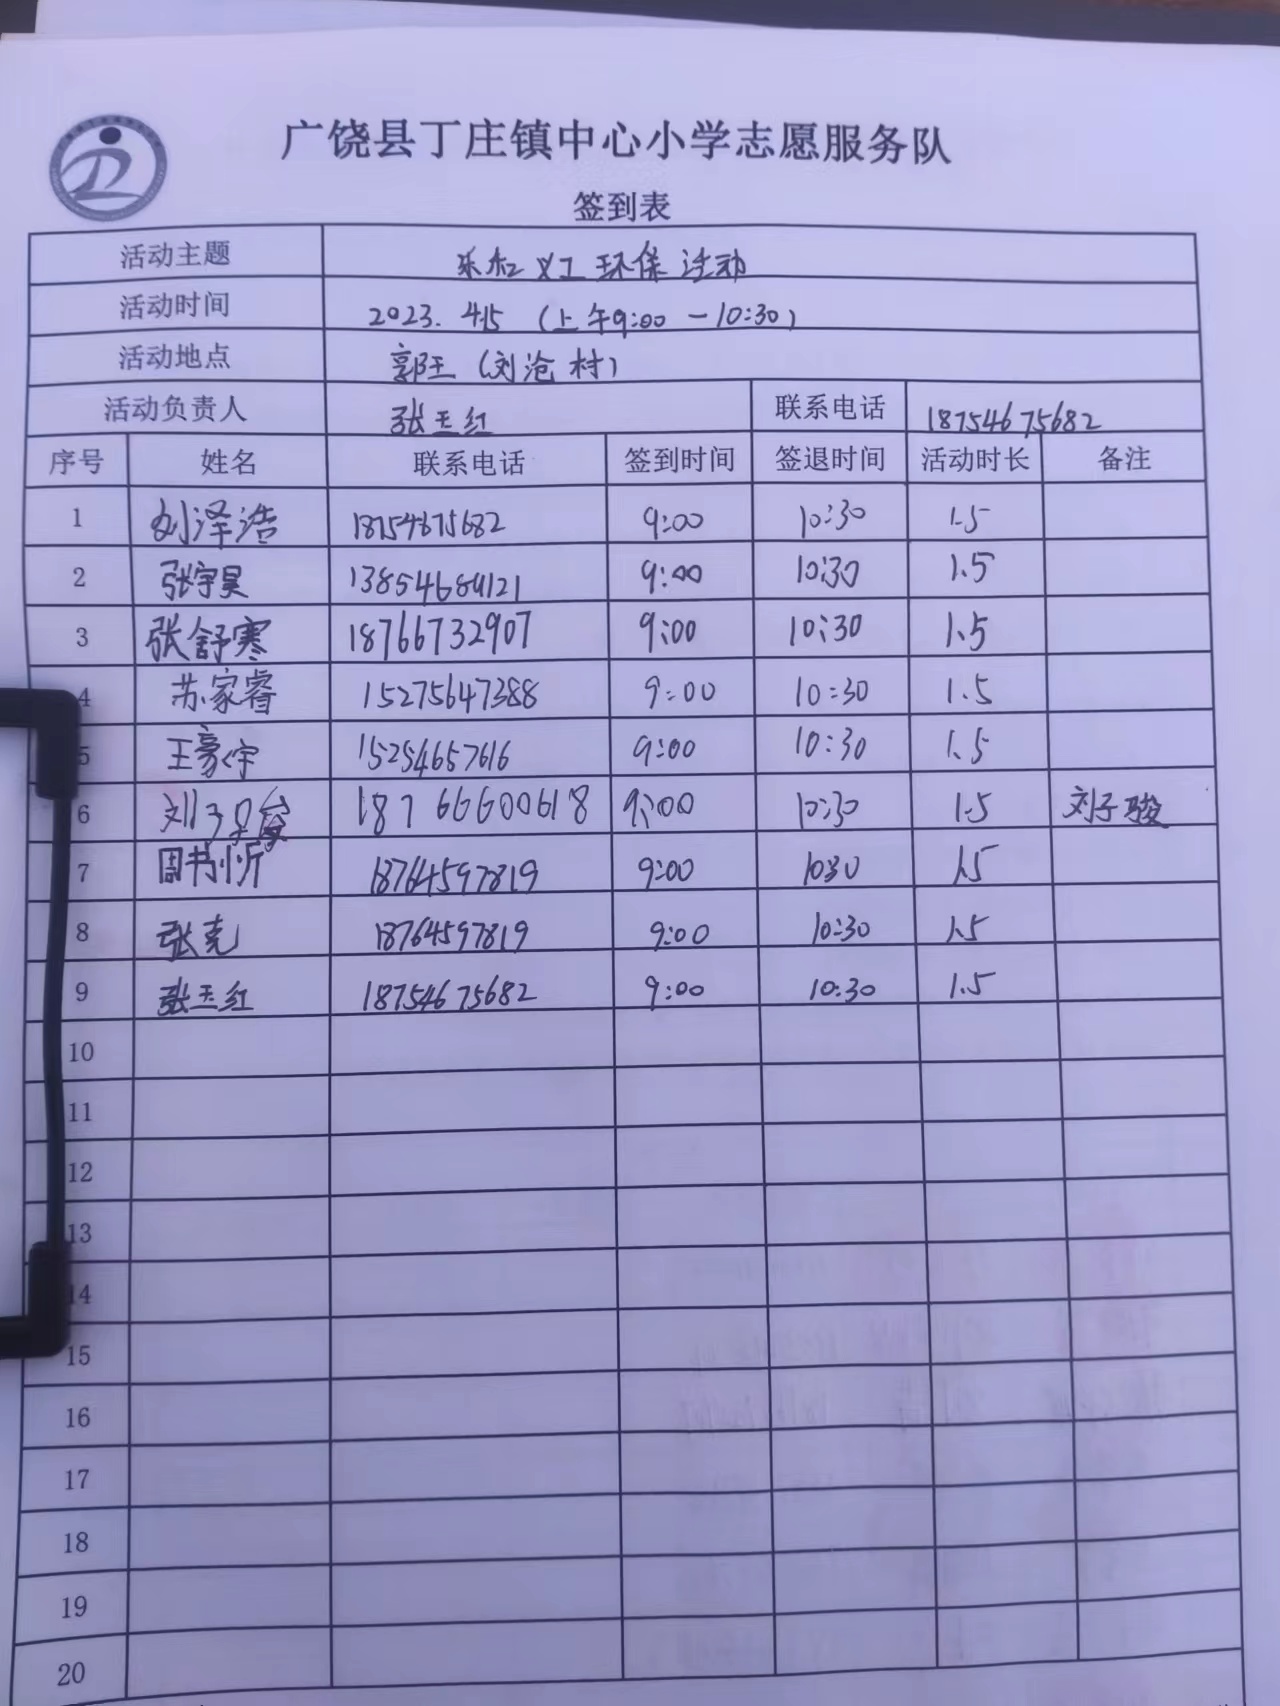 广饶县丁庄镇中心小学志愿服务队
签到表
活动主题 乐和义工环保活动
活动时间 2023.4.15 (上午9:00-10:30)
活动地点 郭王(刘沧村)
活动负责人 张玉红 联系电话 18754675682
序号 姓名 联系电话 签到时间 签退时间 活动时长 备注
1 刘泽浩 18754675682 9:00 10:30 1.5
2 张宇昊 13854684121 9:00 10:30 1.5
3 张舒寒 18766732907 9:00 10:30 1.5
4 苏家睿 15275647388 9:00 10:30 1.5
5 王豪宇 15254657616 9:00 10:30 1.5
6 刘子 18766600618 9:00 10:30 1.5 刘子骏
7 周书忻 18764597819 9:00 10:30 1.5
8 张克 18764597819 9:00 10:30 1.5
9 张玉红 18754675682 9:00 10:30 1.5
10
11
12
13
14
15
16
17
18
19
20